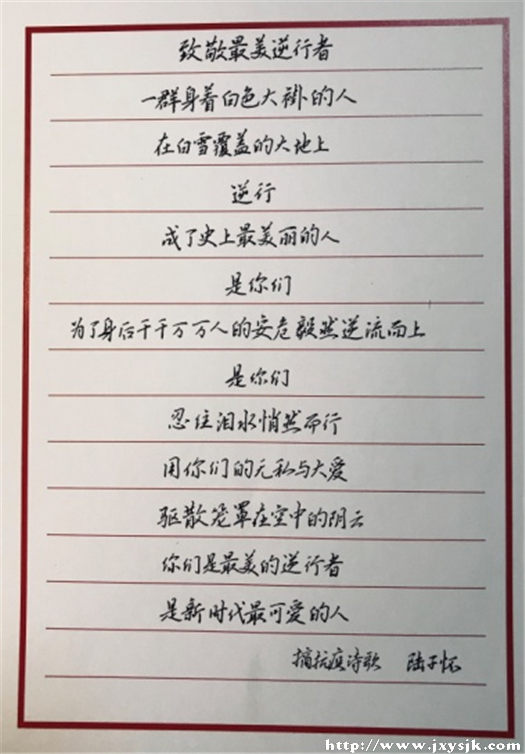 致敬最美逆行者
一群身着白色大褂的人
在白雪覆盖的大地上
逆行
成了史上最美丽的人
是你们
为了身后千千万万人的安危毅然逆流而上
是你们
忍住泪水悄然而行
用你们的无私与大爱
驱散笼罩在空中的阴云
你们是最美的逆行者
是新时代最可爱的人
摘抗疫诗歌 陆子怀
http://www.jxysjk.com